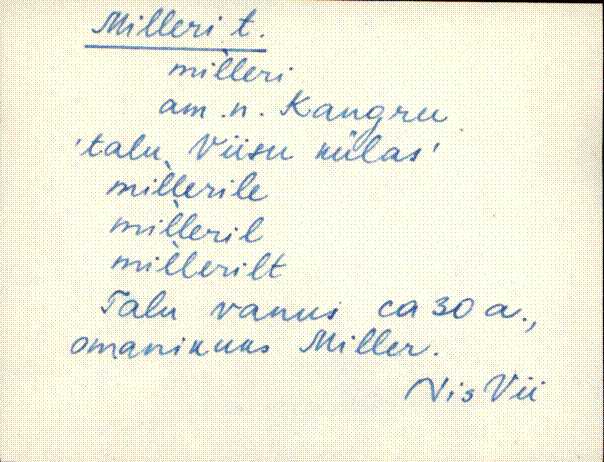 Milleri t.
mil̀leri
am. n. Kangru
'talu Viisu külas'
mil̀lerile
mil̀leril
mil̀lerilt
Talu vanus ca 30 a.,
omanikuks Miller.
Vis Vii